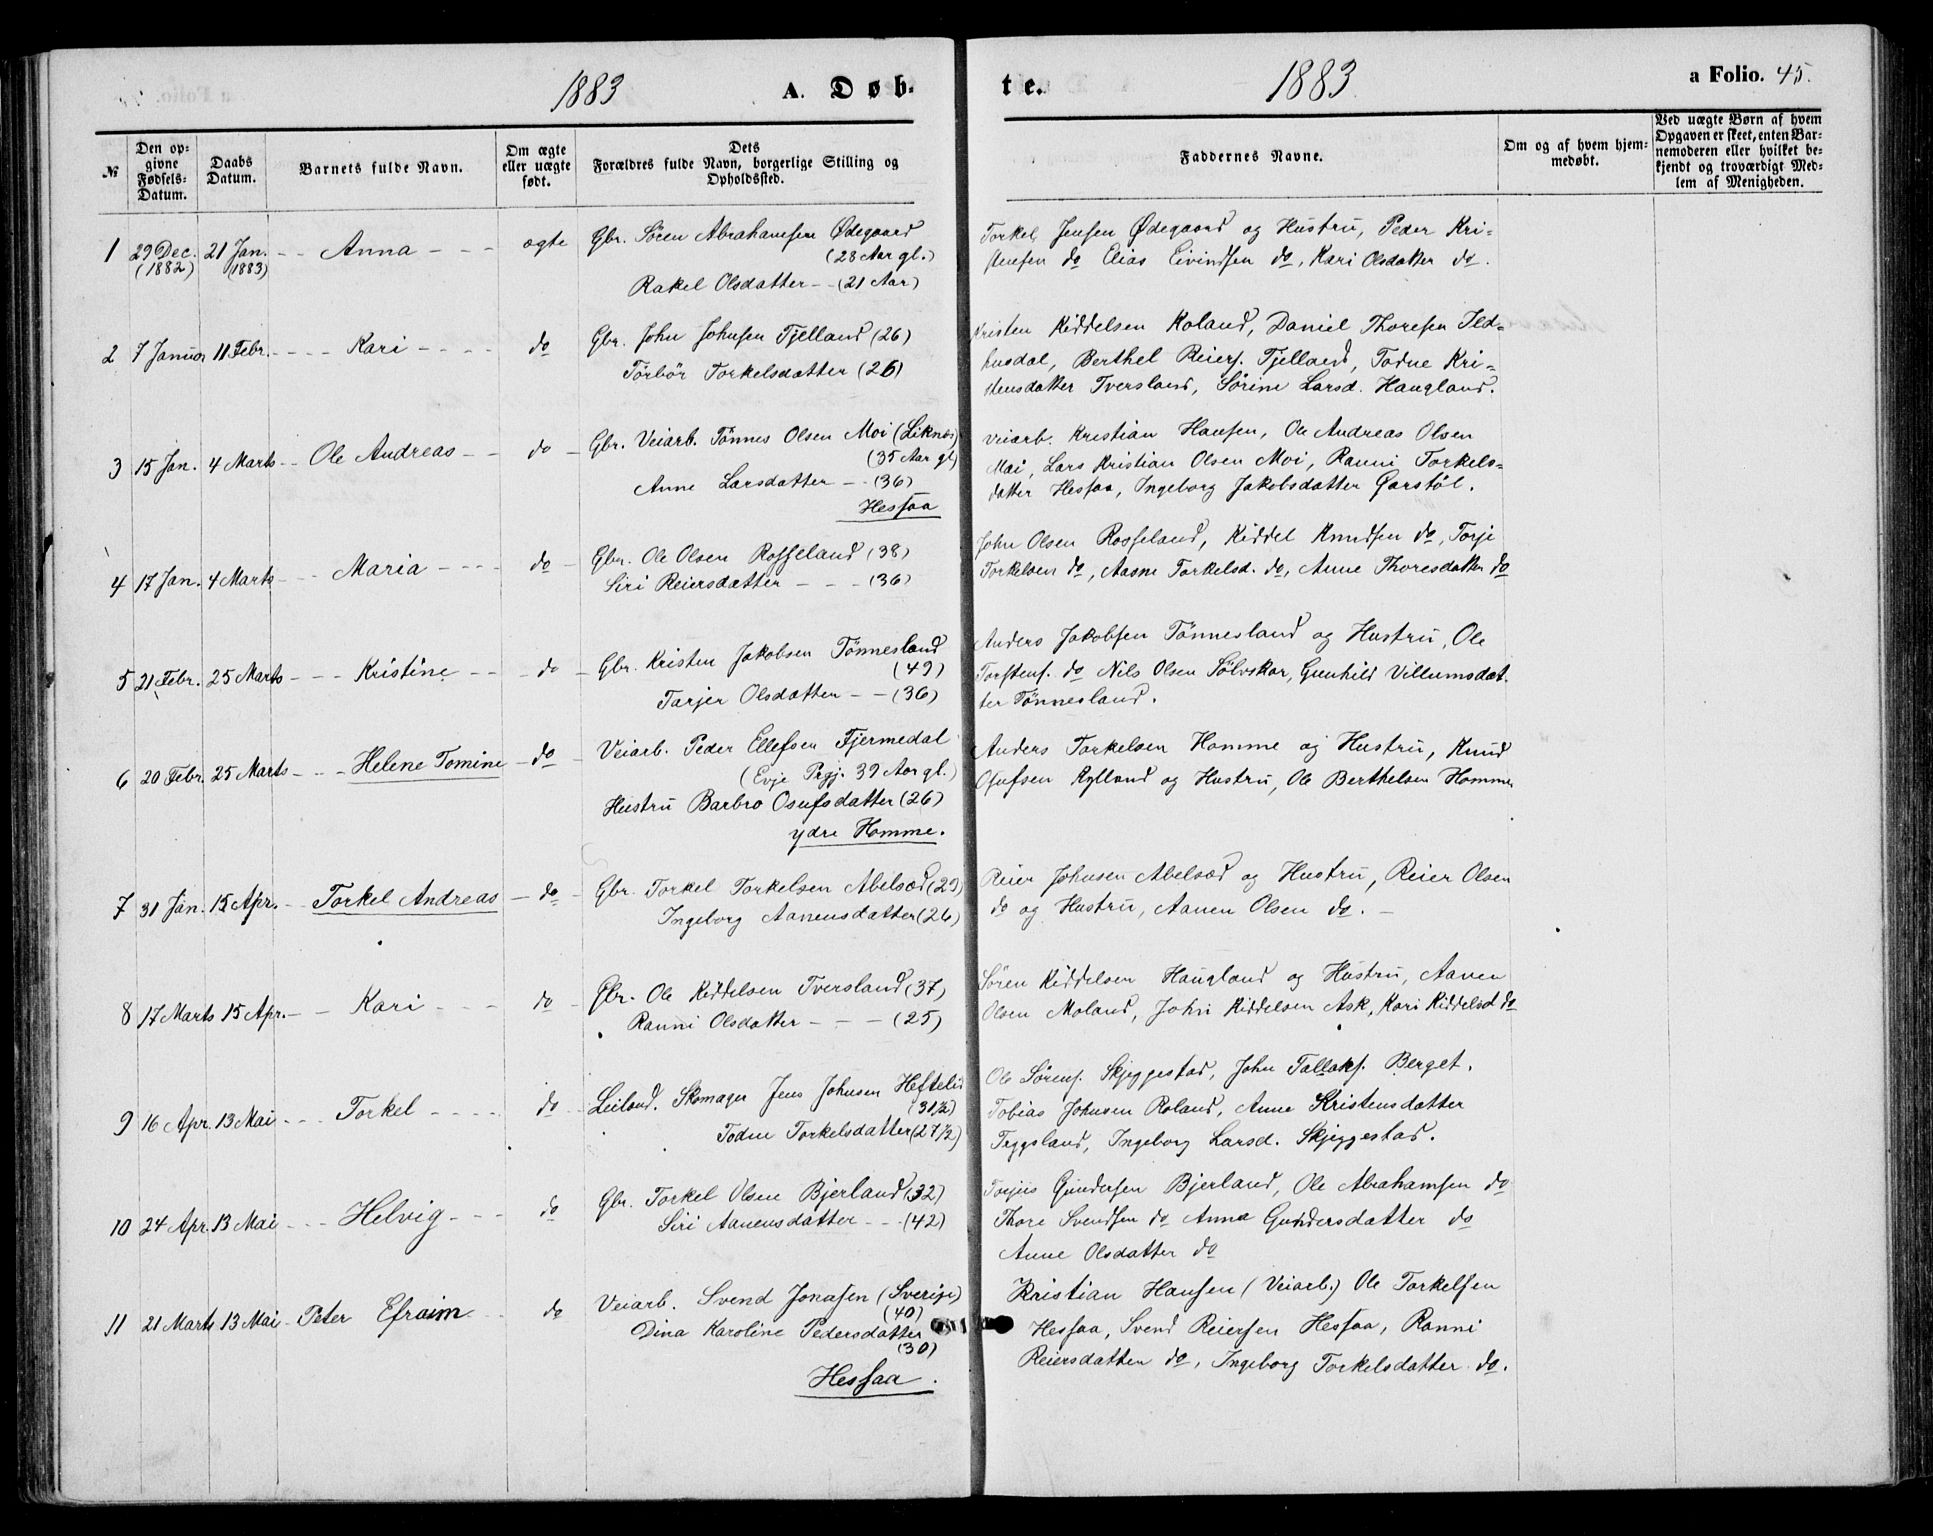 1883 A. Døb-
№ Den op-givne Fødsels-Datum. Daabs Datum. Barnets fulde Navn. Om ægte eller uægte født. Dets Forældres fulde Navn, borgerlige Stilling og Opholdssted.
1 29 Dec. 21 Jan. - - Anna - - - ægte Gbr. Sören Abrahamsen Ødegaard
(1882) (1883) (28 Aar gl.)
Rakel Olsdatter - - (21 Aar)
2 7 Januar 11 Febr. - - - - Kari - - - - do Gbr. John Johnsen Fjelland (26)
Törbör Torkelsdatter (26)
3 15 Jan. 4 Marts - - Ole Andreas - - do - Gbr. Veiarb. Tönnes Olsen Moi (Liknes)
(35 Aar gl)
Anne Larsdatter - - (36)
Hessaa
4 17 Jan. 4 Marts - - - Maria - - - - do - Gbr. Ole Olsen Rosseland (38)
Siri Reiersdatter - - - (36)
5 21 Febr. 25 Marts - - - Kristine - - - do - Gbr. Kristen Jakobsen Tönnesland
(49)
Tarjer Olsdatter - - (36)
6 20 Febr. 25 Marts - - - Helene Tomine - do - Veiarb. Peder Ellefsen Fjermedal
(Evje Prgj. 39 Aar gl.)
Hustru Barbro Osufsdatter (26)
ydre Homme.
7 31 Jan. 15 Apr. - Torkel Andreas - do - Gbr. Torkel Torkelsen Abelsæd (29)
Ingeborg Aanensdatter (26)
8 17 Marts 15 Apr. - - Kari - - - do - Gbr. Ole Kiddelsen Tversland (37)
Ranni Olsdatter - - - (25)
9 16 Apr. 13 Mai - - - Torkel - - - - do - Leiland. Skomager Jens Johnsen Heftelid
(31½)
Todne Torkelsdatter (27½)
10 24 Apr. 13 Mai - - - Helvig - - - do Gbr. Torkel Olsen Bjerland (32)
Siri Aanensdatter - - - (42)
11 21 Marts 13 Mai - Peter Efraim - - do Veiarb. Svend Jonassen (Sverige)
(40)
Dina Karoline Pedersdatter
(30)
Hessaa.
te. 1883 a Folio. 45.
Faddernes Navne. Om og af hvem hjem-medøbt. Ved uægte Børn af hvem Opgaven er skeet, enten Bar-nemoderen eller hvilket be-kjendt og troværdigt Med-lem af Menigheden.
Torkel Jensen Ødegaard og Hustru, Peder Kri-
stensen do Elias Eivindsen do, Kari Olsdatter do.
Kristen Kiddelsen Roland, Daniel Thoresen Ild-
husdal, Berthel Reiers. Fjelland, Todne Kri-
stensdatter Tversland, Sörine Larsd. Haugland.
Veiarb. Kristian Hansen, Ole Andreas Olsen
Moi, Lars Kristian Olsen Moi, Ranni Torkels-
datter Hessaa, Ingeborg Jakobsdatter Garstöl.
John Olsen Rosseland, Kiddel Knudsen do, Torje
Torkelsen do, Aasne Torkelsd. do, Anne Thoresdatter do
Anders Jakobsen Tönnesland og Hustru, Ole
Torstens. do Nils Olsen Sölvskar, Gunhild Villumsdat-
ter Tönnesland.
Anders Torkelsen Homme og Hustru, Knud
Osufsen Rylland og Hustru, Ole Berthelsen Homme
Reier Johnsen Abelsæd og Hustru, Reier Olsen
do og Hustru, Aanen Olsen do. -
Sören Kiddelsen Haugland og Hustru, Aanen
Olsen Moland, John Kiddelsen Ask, Kari Kiddelsd do
Ole Sörens. Skjeggestad, John Tallaks. Berget,
Tobias Johnsen Roland, Anne Kristensdatter
Tryggsland, Ingeborg Larsd. Skjeggestad.
Torjus Gundersen Bjerland, Ole Abrahamsen do
Thore Svendsen do Anna Gundersdatter do
Anne Olsdatter do
Kristian Hansen (Veiarb.) Ole Torkelsen
Hessaa, Svend Reiersen Hessaa, Ranni
Reiersdatter do, Ingeborg Torkelsdatter do.